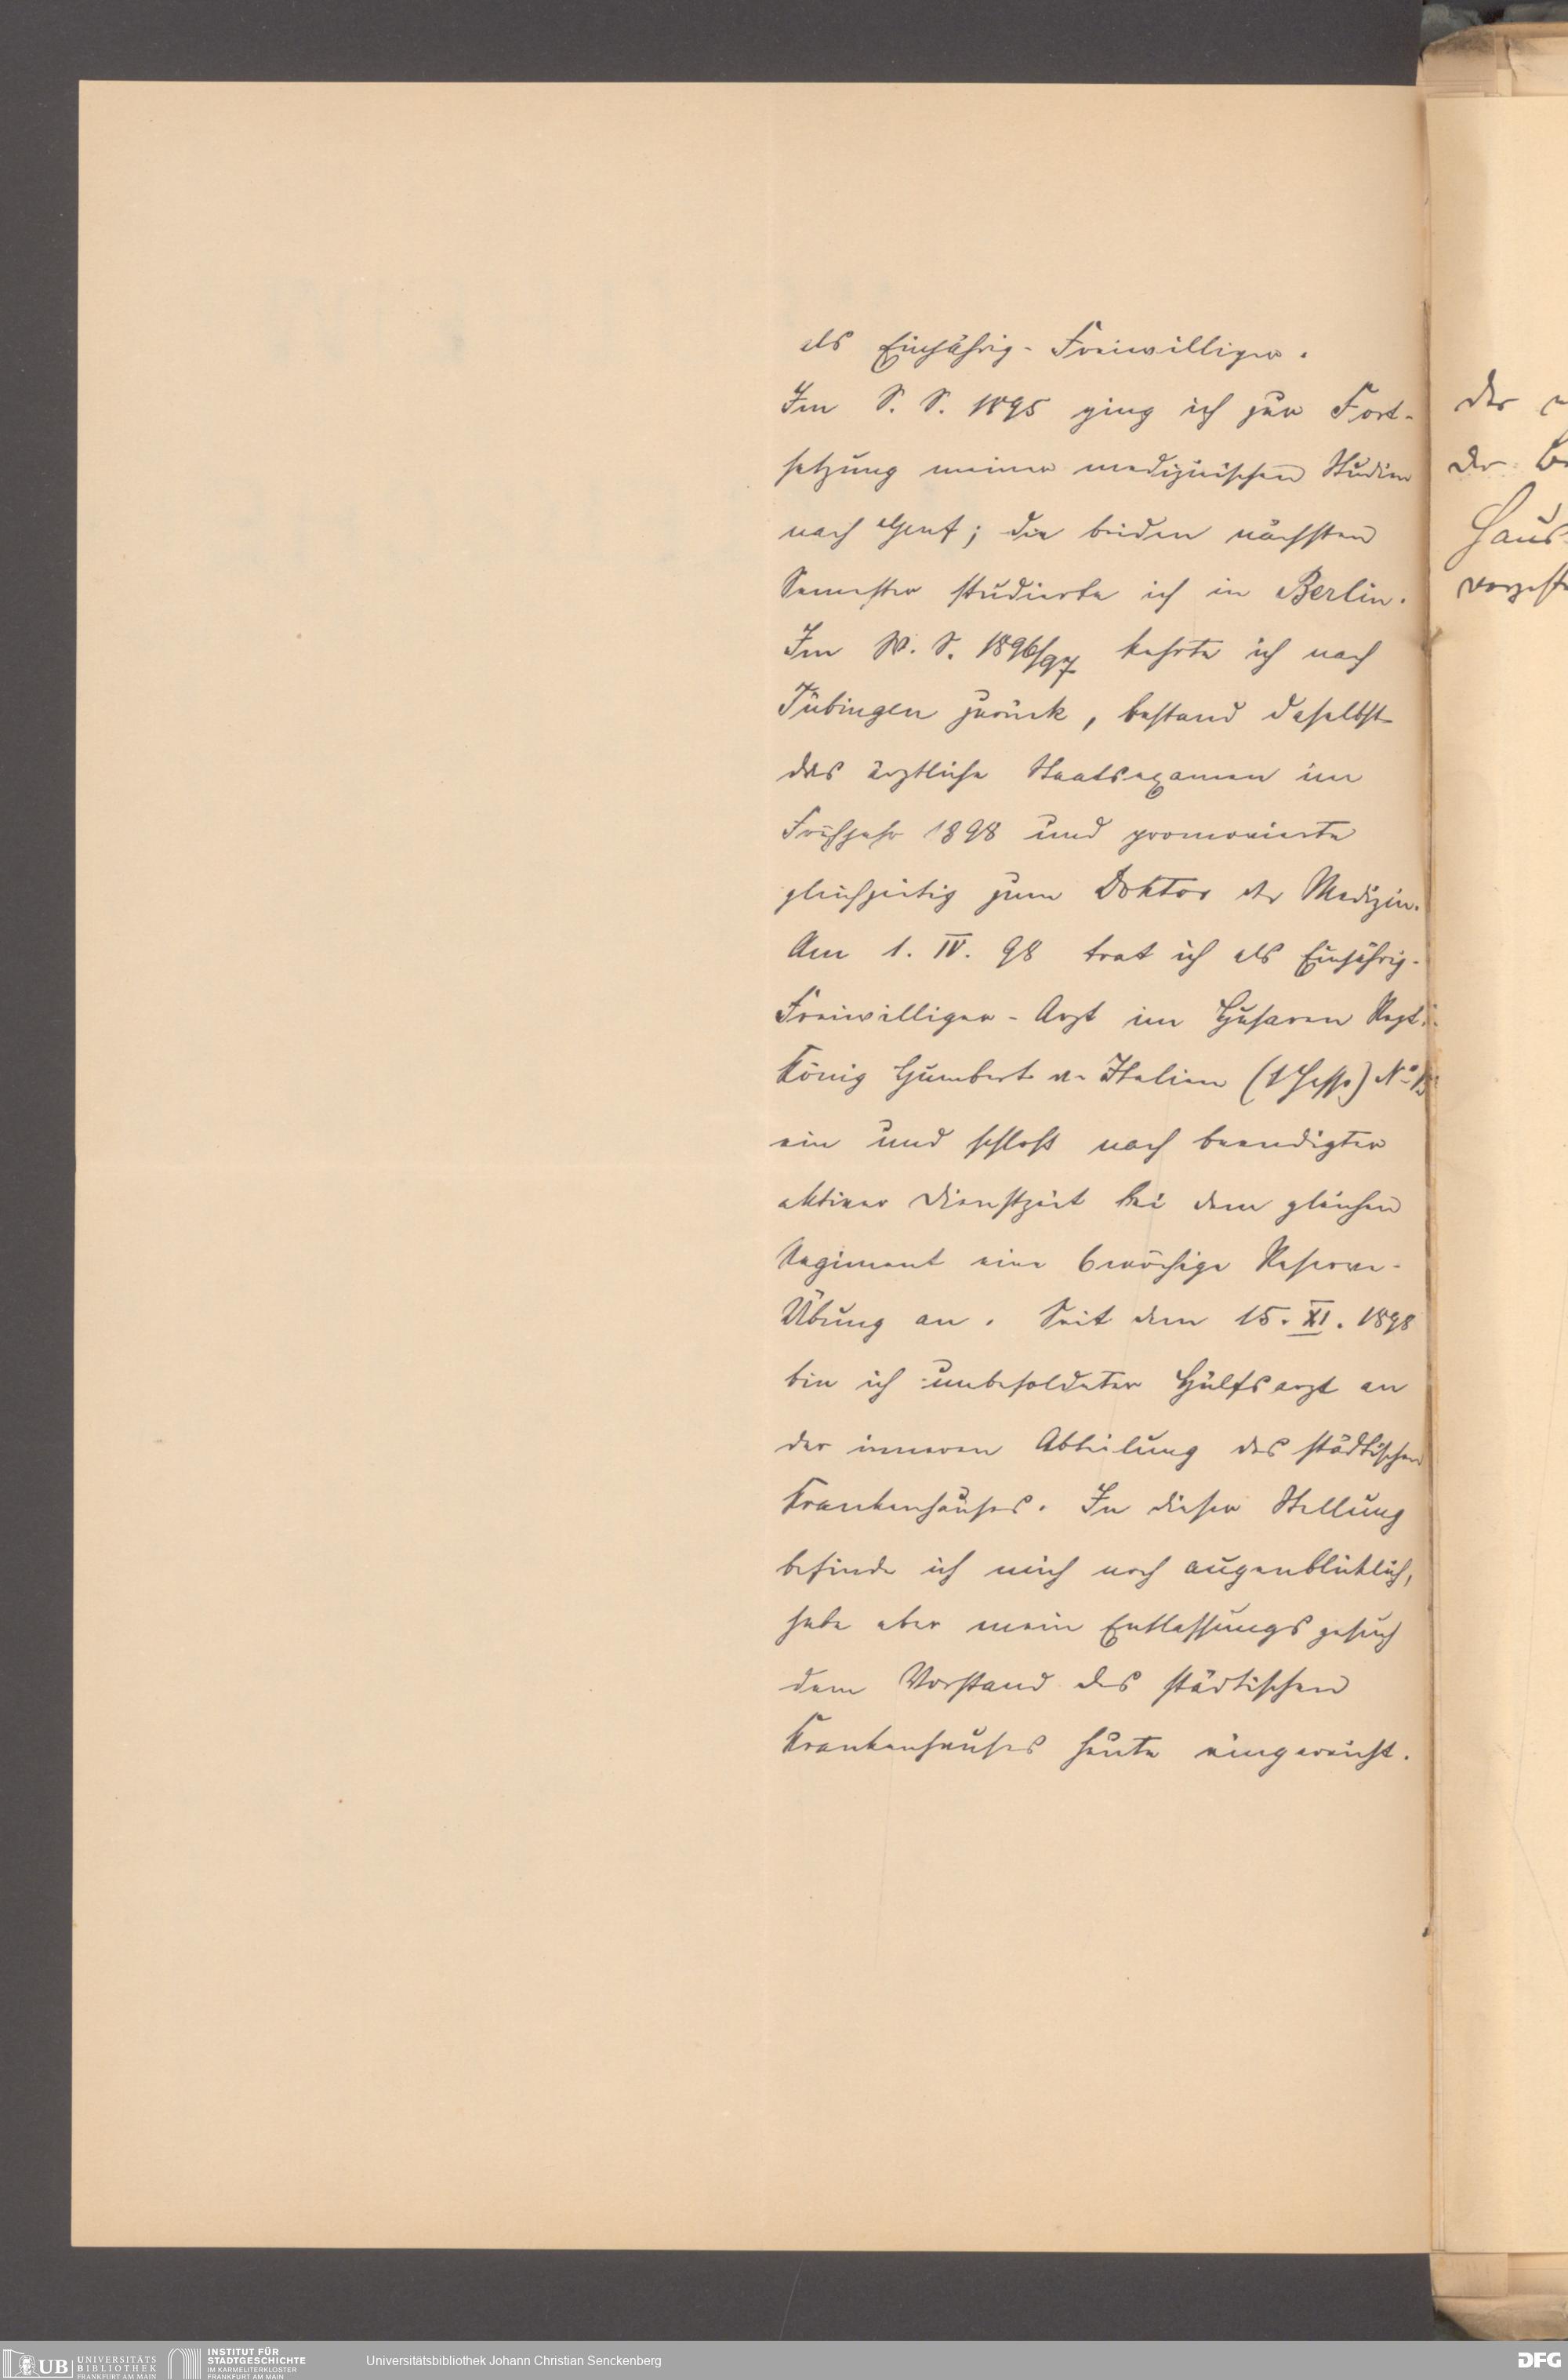 als Einjährig-Freiwilliger.
Im S. S. 1895 ging ich zur Fort-
setzung meiner medizinischen Studien
nach Genf; die beiden nächsten
Semester studierte ich in Berlin.
Im W. S. 1896/97 kehrte ich nach
Tübingen zurück, bestand daselbst
das ärztliche Staatsexamen im
Frühjahr 1898 und promovierte
gleichzeitig zum Doktor der Medizin.
Am 1. IV. 98 trat ich als Einjährig-
Freiwilliger-Arzt im Husaren Regt.
König Humbert v. Italien (1 Hess.) No 13
ein und schloß nach beendigter
aktiver Dienstzeit bei dem gleichen
Regiment eine 6wöchige Reserve-
Übung an. Seit dem 15. XI. 1898
bin ich unbesoldeter Hülfsarzt an
der inneren Abteilung des städtischen
Krankenhauses. In dieser Stellung
befinde ich mich noch augenblicklich,
habe aber mein Entlassungsgesuch
dem Vorstand des städtischen
Krankenhauses heute eingereicht.
der
Haus
UB UNIVERSITÄTS
BIBLIOTHEK
FRANKFURT AM MAIN
INSTITUT FÜR
STADTGESCHICHTE
IM KARMELITERKLOSTER
FRANKFURT AM MAIN
Universitätsbibliothek Johann Christian Senckenberg
DFG